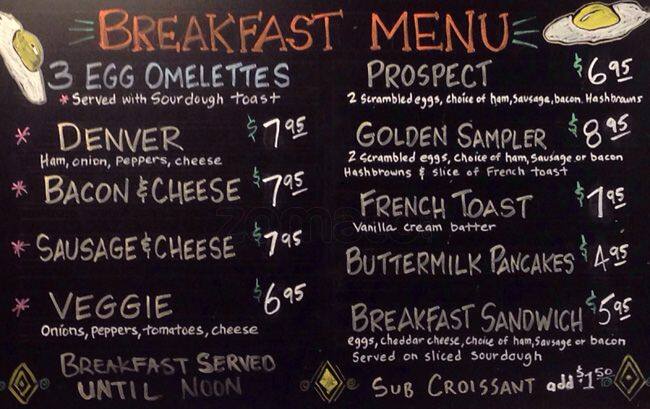 BREAKFAST MENU
3 EGG OMELETTES
*Served with Sourdough toast
* DENVER $7.95
Ham, onion, Peppers, cheese
* BACON & CHEESE $7.95
* SAUSAGE & CHEESE $7.95
* VEGGIE $6.95
Onions, peppers, tomatoes, cheese
BREAKFAST SERVED
UNTIL NOON
PROSPECT $6.95
2 Scrambled eggs, choice of ham, sausage, bacon. Hashbrowns
GOLDEN SAMPLER $8.95
2 Scrambled eggs, choice of ham, sausage or bacon
Hashbrowns & slice of French toast
FRENCH TOAST $7.95
Vanilla cream batter
BUTTERMILK PANCAKES $4.95
BREAKFAST SANDWICH $5.95
eggs, cheddar cheese, choice of ham, sausage or bacon
Served on sliced Sourdough
SUB CROISSANT add $1.50